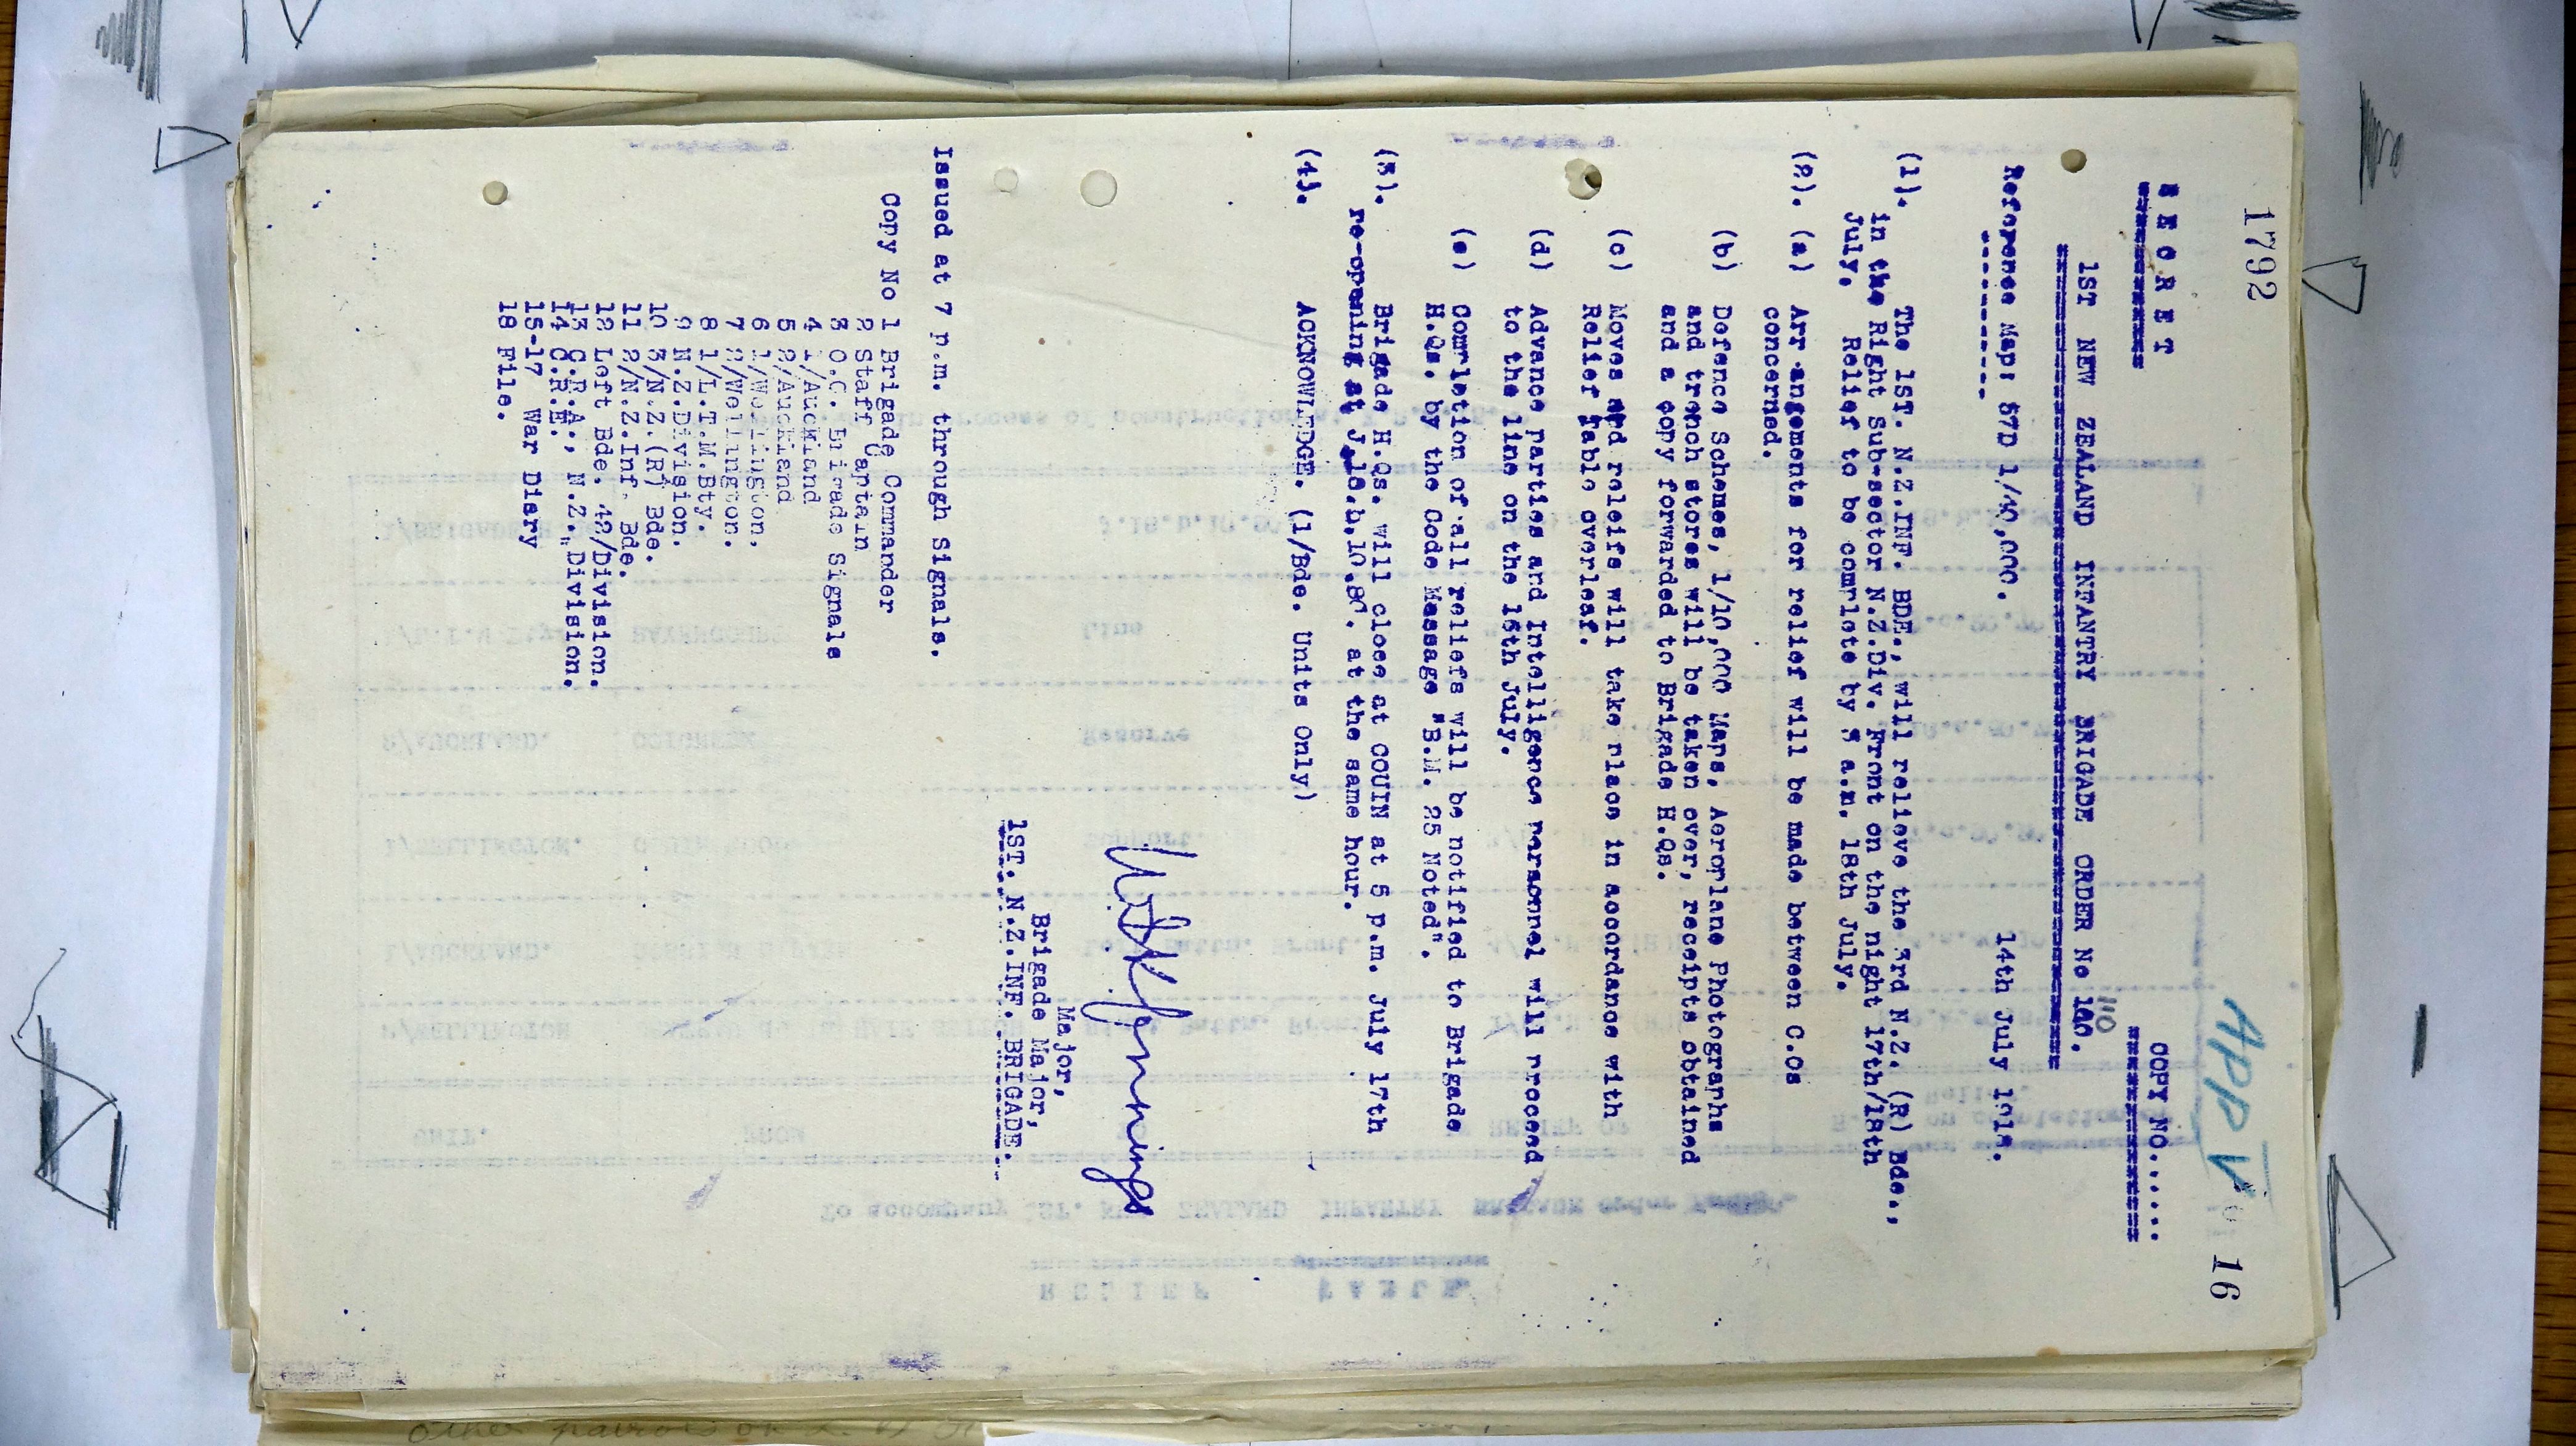 1792
APP V 16
S E C R E T
COPY NO.......
1ST NEW ZEALAND INFANTRY BRIGADE ORDER No 100.
110
Reference Map: 57D 1/40,000. 14th July 1918.
(1). The 1ST. N.Z.INF. BDE., will relieve the 3rd N.Z. (R) Bde.,
in the Right Sub-sector N.Z.Div. Front on the night 17th/18th
July. Relief to be complete by 5 a.m. 18th July.
(2). (a) Arrangements for relief will be made between C.Os
concerned.
(b) Defence Schemes, 1/10,000 Maps, Aeroplane Photographs
and trench stores will be taken over, receipts obtained
and a copy forwarded to Brigade H.Qs.
(c) Moves and releifs will take place in accordance with
Relief Table overleaf.
(d) Advance parties and Intelligence personnel will proceed
to the line on the 16th July.
(e) Completion of all reliefs will be notified to Brigade
H.Qs. by the Code Message "B.M. 25 Noted".
(3). Brigade H.Qs. will close at COUIN at 5 p.m. July 17th
re-opening at J.18.b.10.80. at the same hour.
(4). ACKNOWLEDGE. (1/Bde. Units Only)
Major,
Brigade Major,
1ST. N.Z.INF. BRIGADE.
Issued at 7 p.m. through Signals.
Copy No 1 Brigade Commander
2 Staff Captain
3 O.C. Brigade Signals
4 1/Auckland
5 2/Auckland
6 1/Wellington.
7 2/Wellington.
8 1/L.T.M.Bty.
9 N.Z.Division.
10 3/N.Z.(R) Bde.
11 2/N.Z.Inf. Bde.
12 Left Bde. 42/Division.
13 C.R.A., N.Z. Division.
14 C.R.E. " Division.
15-17 War Diary
18 File.